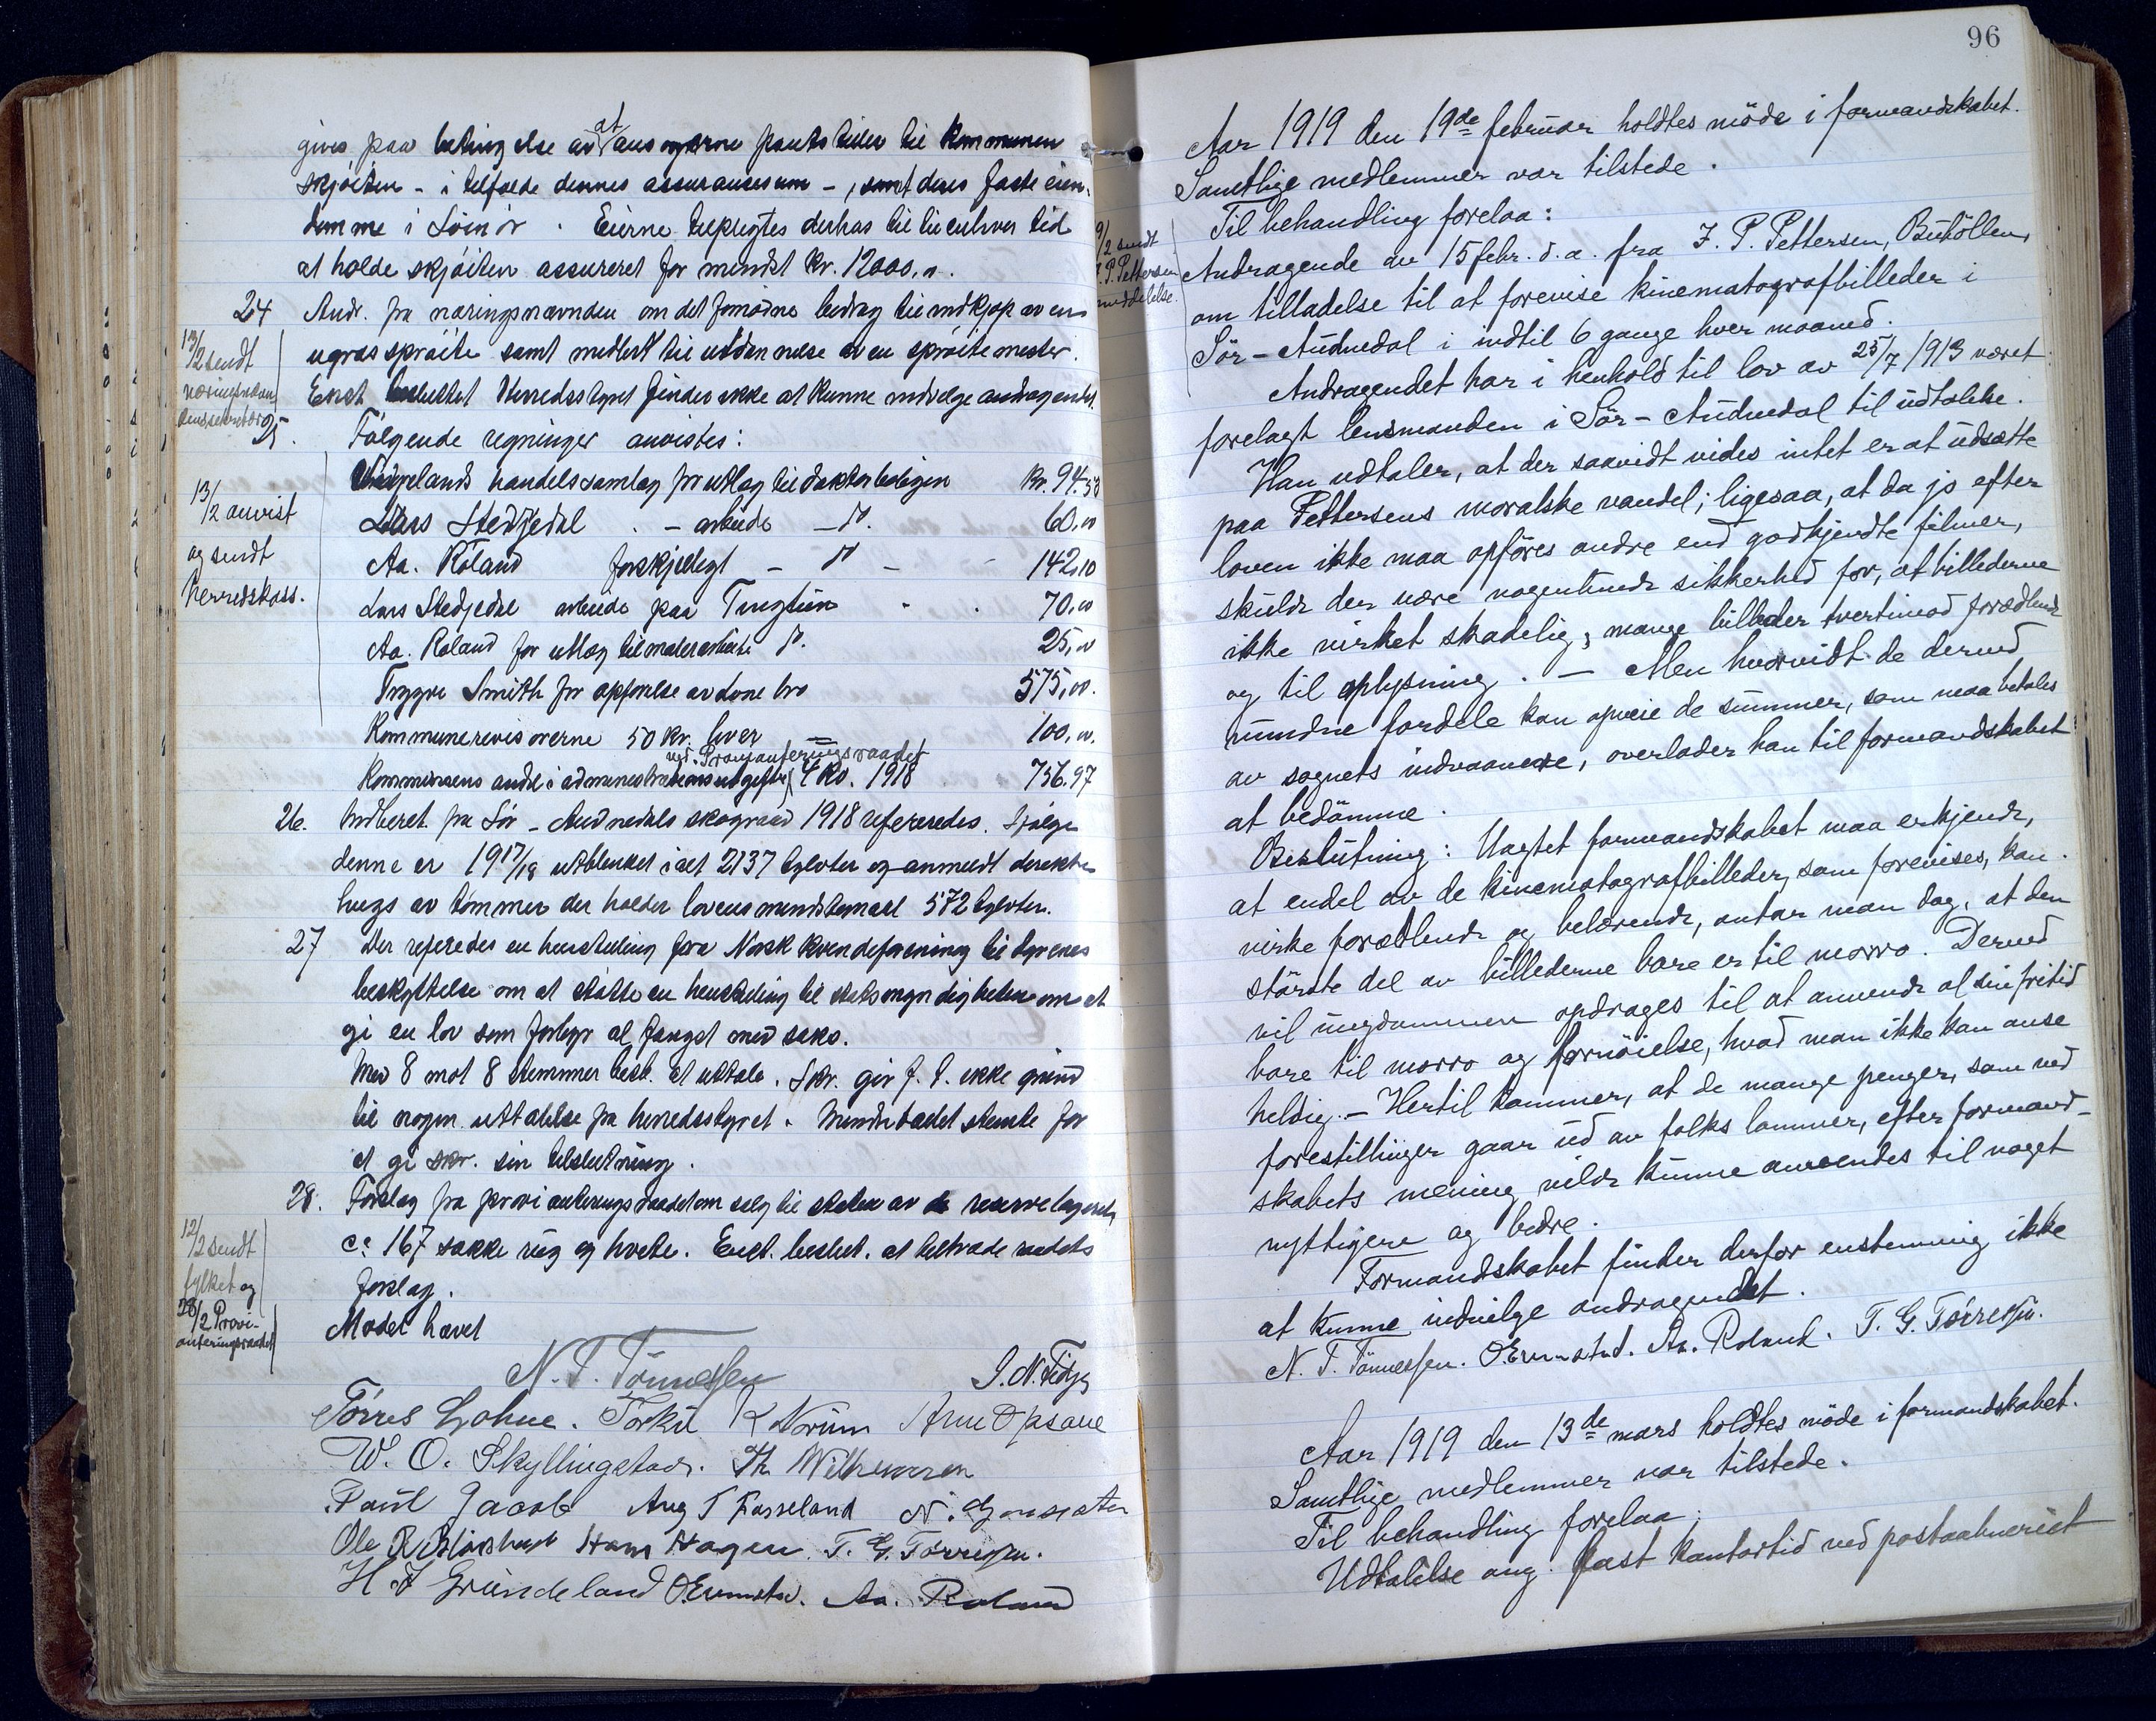 gives paa betingelse av at ansøgerne pantstiller til kommunen
skjøiten - i tilfælde dennes assurancesum -, samt deres faste eien-
domme i Svinör. Eierne tilpligtes derhos til tilenhver tid
at holde skjøiten assureret for mindst kr. 12000,00.
24 Andr. fra næringsnævnden om det fornødne bidrag til indkjøp av en
13/2 sendt
næringsnævn
denssekretær
ugrassprøite samt midler til utdannelse av en sprøitemester.
Enst. besluttet Herredsstyret finder ikke at kunne indvilge andragendet.
25. Følgende regninger anvistes:
13/2 anvist
og sendt
herredskass.
handelssamlag for utlæg til doktorboligen kr. 94.53
Lars Stedjedal - arbeide - " 60,00
Aa. Röland forskjelligt - " - 142,10
Lars Stedjedal arbeide paa Tingtun 70,00
Aa. Roland for utlæg til malerarbeide ". 25,00
Trygve Smith for opførelse av done bro 575,00.
Kommunerevisorerne 50 kr. hver = 100,00.
Kommunens andel i administrationsutgifter ved Provianteringsraadet 4 kv. 1918 756.97
26. Indberet. fra Sör-Audnedals skograad 1918 refereredes. Ifølge
denne er 1917/18 utblinket ialt 2137 tylvter og anmeldt direkte
hugs av tømmer der holder lovens mindstemaal 572 tylvter.
27 Der refereredes en henstilling fra Norsk kvindeforening til dyrenes
beskyttelse om at støtte en henstilling til statsmyndigheterne om at
gi en lov som forbyr al fangst med saks.
Med 8 mot 8 stemmer besl. at uttale. Skr. gir f. t. ikke grund
til nogen uttalelse fra herredsstyret. Mindretallet stemte for
at gi skr. sin tilslutning.
28. Forslag fra provianteringsraadet om salg til staten av de reservelagrede
12/2 sendt
fylket og
28/2 Provi-
anteringsraadet
ca 167 sække rug og hvete. Enst. beslut. at tiltræde raadets
forslag.
Mødet hævet
N. T. Tönnessen S. N. Fidje
Törres Lohne. Torkil K Norum Arne Opsal
W. O. Skyllingstad. Th. Wilhemsen
Paul Jacob Aug T Fasseland N.
Ole R Hans Hagen. T. G. Törresen.
H. J Gründeland O. Ernstad. Aa. Roland
96
Aar 1919 den 19de februar holdtes möde i formandskabet.
Samtlige medlemmer var tilstede.
Til behandling forelaa:
19/2 sendt
J. P. Pettersen
meddelelse.
Andragende av 15 febr. d. a. fra J. P. Pettersen, Buhöllen,
om tilladelse til at forevise kinematografbilleder i
Sör-Audnedal i indtil 6 gange hver maaned.
Andragendet har i henhold til lov av 25/7 1913 været
forelagt lensmanden i Sör-Audnedal til udtalelse.
Han udtaler, at der saavidt vides intet er at udsætte
paa Pettersens moralske vandel; ligesaa, at da jo efter
loven ikke maa opföres andre end godkjendte filmer,
skulde der være nogenlunde sikkerhed for, at billederne
ikke virket skadelig; mange billeder tvertimod forædlende
og til oplysning. - Men hvorvidt de derved
vundne fordele kan opveie de summer, som maa betales
av sognets indvaanere, overlader han til formandskabet
at bedömme.
Beslutning: Uagtet formandskabet maa erkjende,
at endel av de kinematografbilleder, som forevises, kan
virke forædlende og belærende, antar man dog, at den
störste del av billederne bare er til morro. Derved
vil ungdommen opdrages til at anvende al sin fritid
bare til morro og fornöielse, hvad man ikke kan anse
heldig. - Hertil kommer, at de mange penger, som ved
forestillinger gaar ud av folks lommer, efter formand-
skabets mening vilde kunne anvendes til noget
nyttigere og bedre.
Formandskabet finder derfor enstemmig ikke
at kunne indvilge andragendet.
N. T. Tönnessen. O. Ernstad. Aa. Roland. T. G. Törresen.
Aar 1919 den 13de mars holdtes möde i formandskabet.
Samtlige medlemmer var tilstede.
Til behandling forelaa:
Udtalelse ang. fast kontortid ved postaabneriet